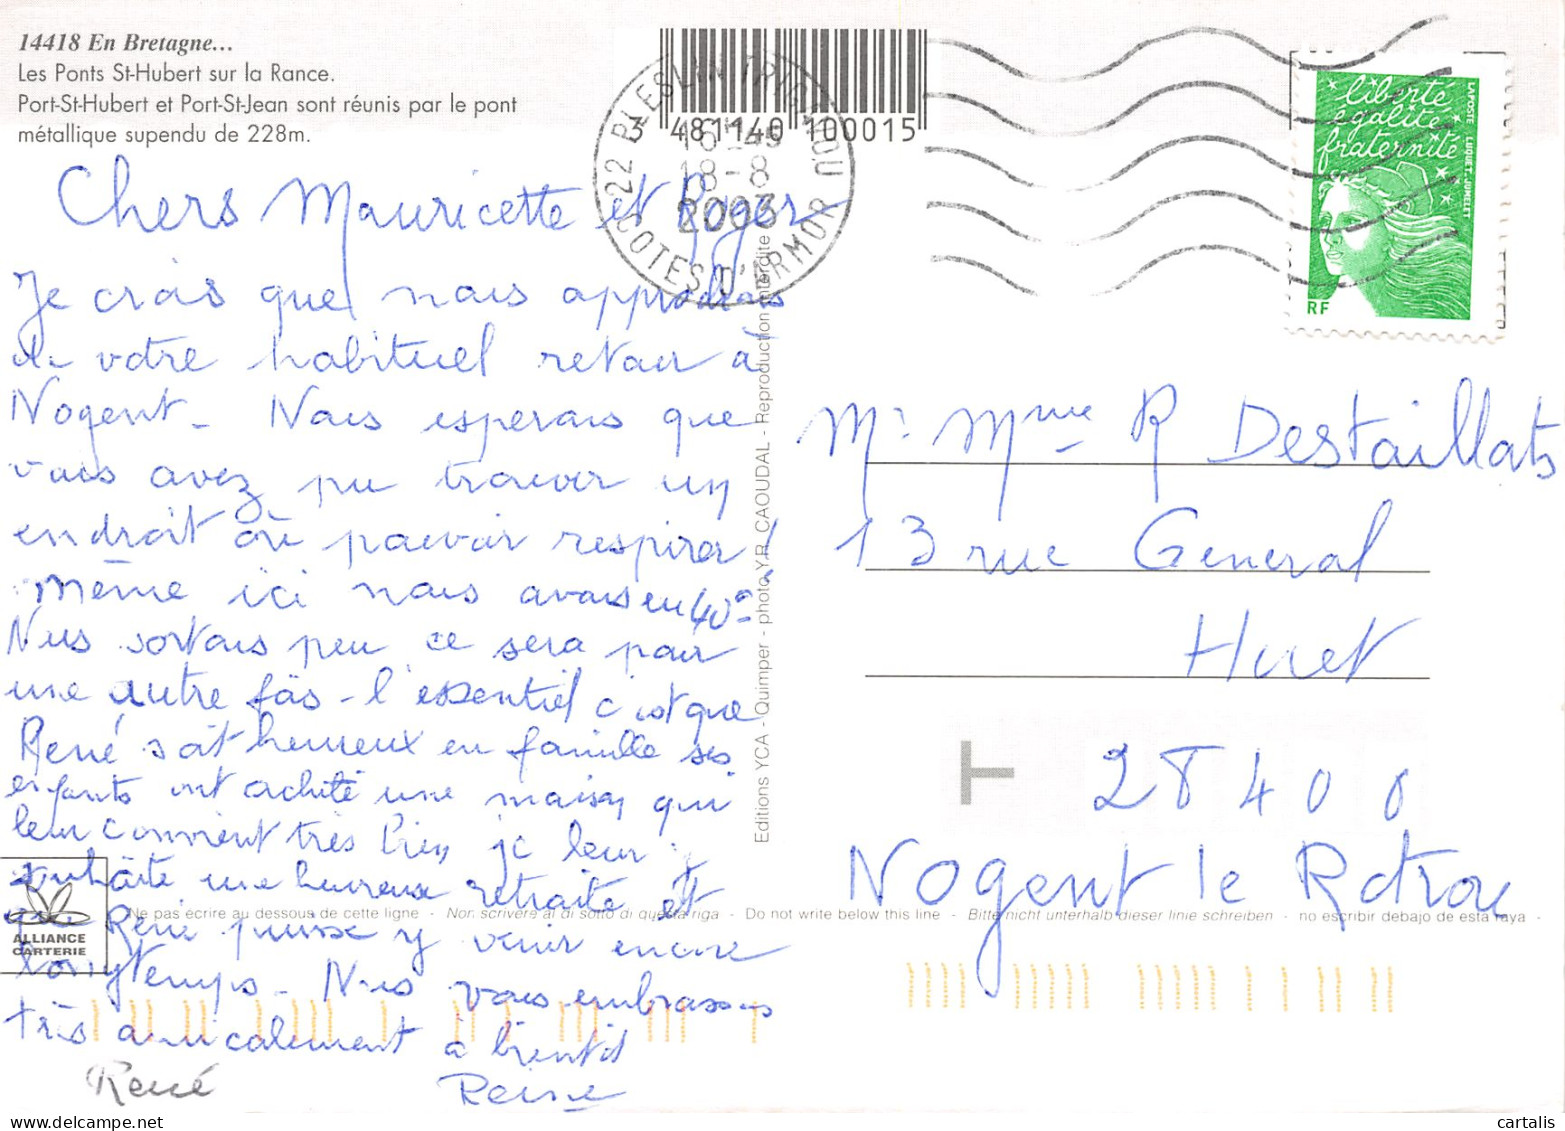 14418 En Bretagne...
Les Ponts St-Hubert sur la Rance.
Port-St-Hubert et Port-St-Jean sont réunis par le pont
métallique supendu de 228m.
3 481140 100015
22 PLESLIN TRIGAVOU
COTES D'ARMOR
18-8
2003
liberté
égalité
fraternité
LA POSTE LUQUET-JUMELET
RF
Chers Mauricette et Roger
Je crois que nous approchons
de votre habituel retour à
Nogent - Nous esperons que
vous avez pu trouver un
endroit où pouvoir respirer!
même ici nous avons eu 40°-
Nous sortons peu ce sera pour
une autre fois - l'essentiel c'est que
René soit heureux en famille ses
enfants ont acheté une maison qui
leur convient très bien je leur
souhaite une heureuse retraite et
que René puisse y venir encore
longtemps - Nous vous embrassons
très amicalement à bientôt
René Reine
Mr Mme R Destaillats
13 rue General
Huet
28400
Nogent le Rotrou
Editions YCA - Quimper - photo Y.R. CAOUDAL - Reproduction interdite
T
ALLIANCE
CARTERIE
Ne pas écrire au dessous de cette ligne - Non scrivere al di sotto di questa riga - Do not write below this line - Bitte nicht unterhalb dieser linie schreiben - no escribir debajo de esta raya -
cartalis